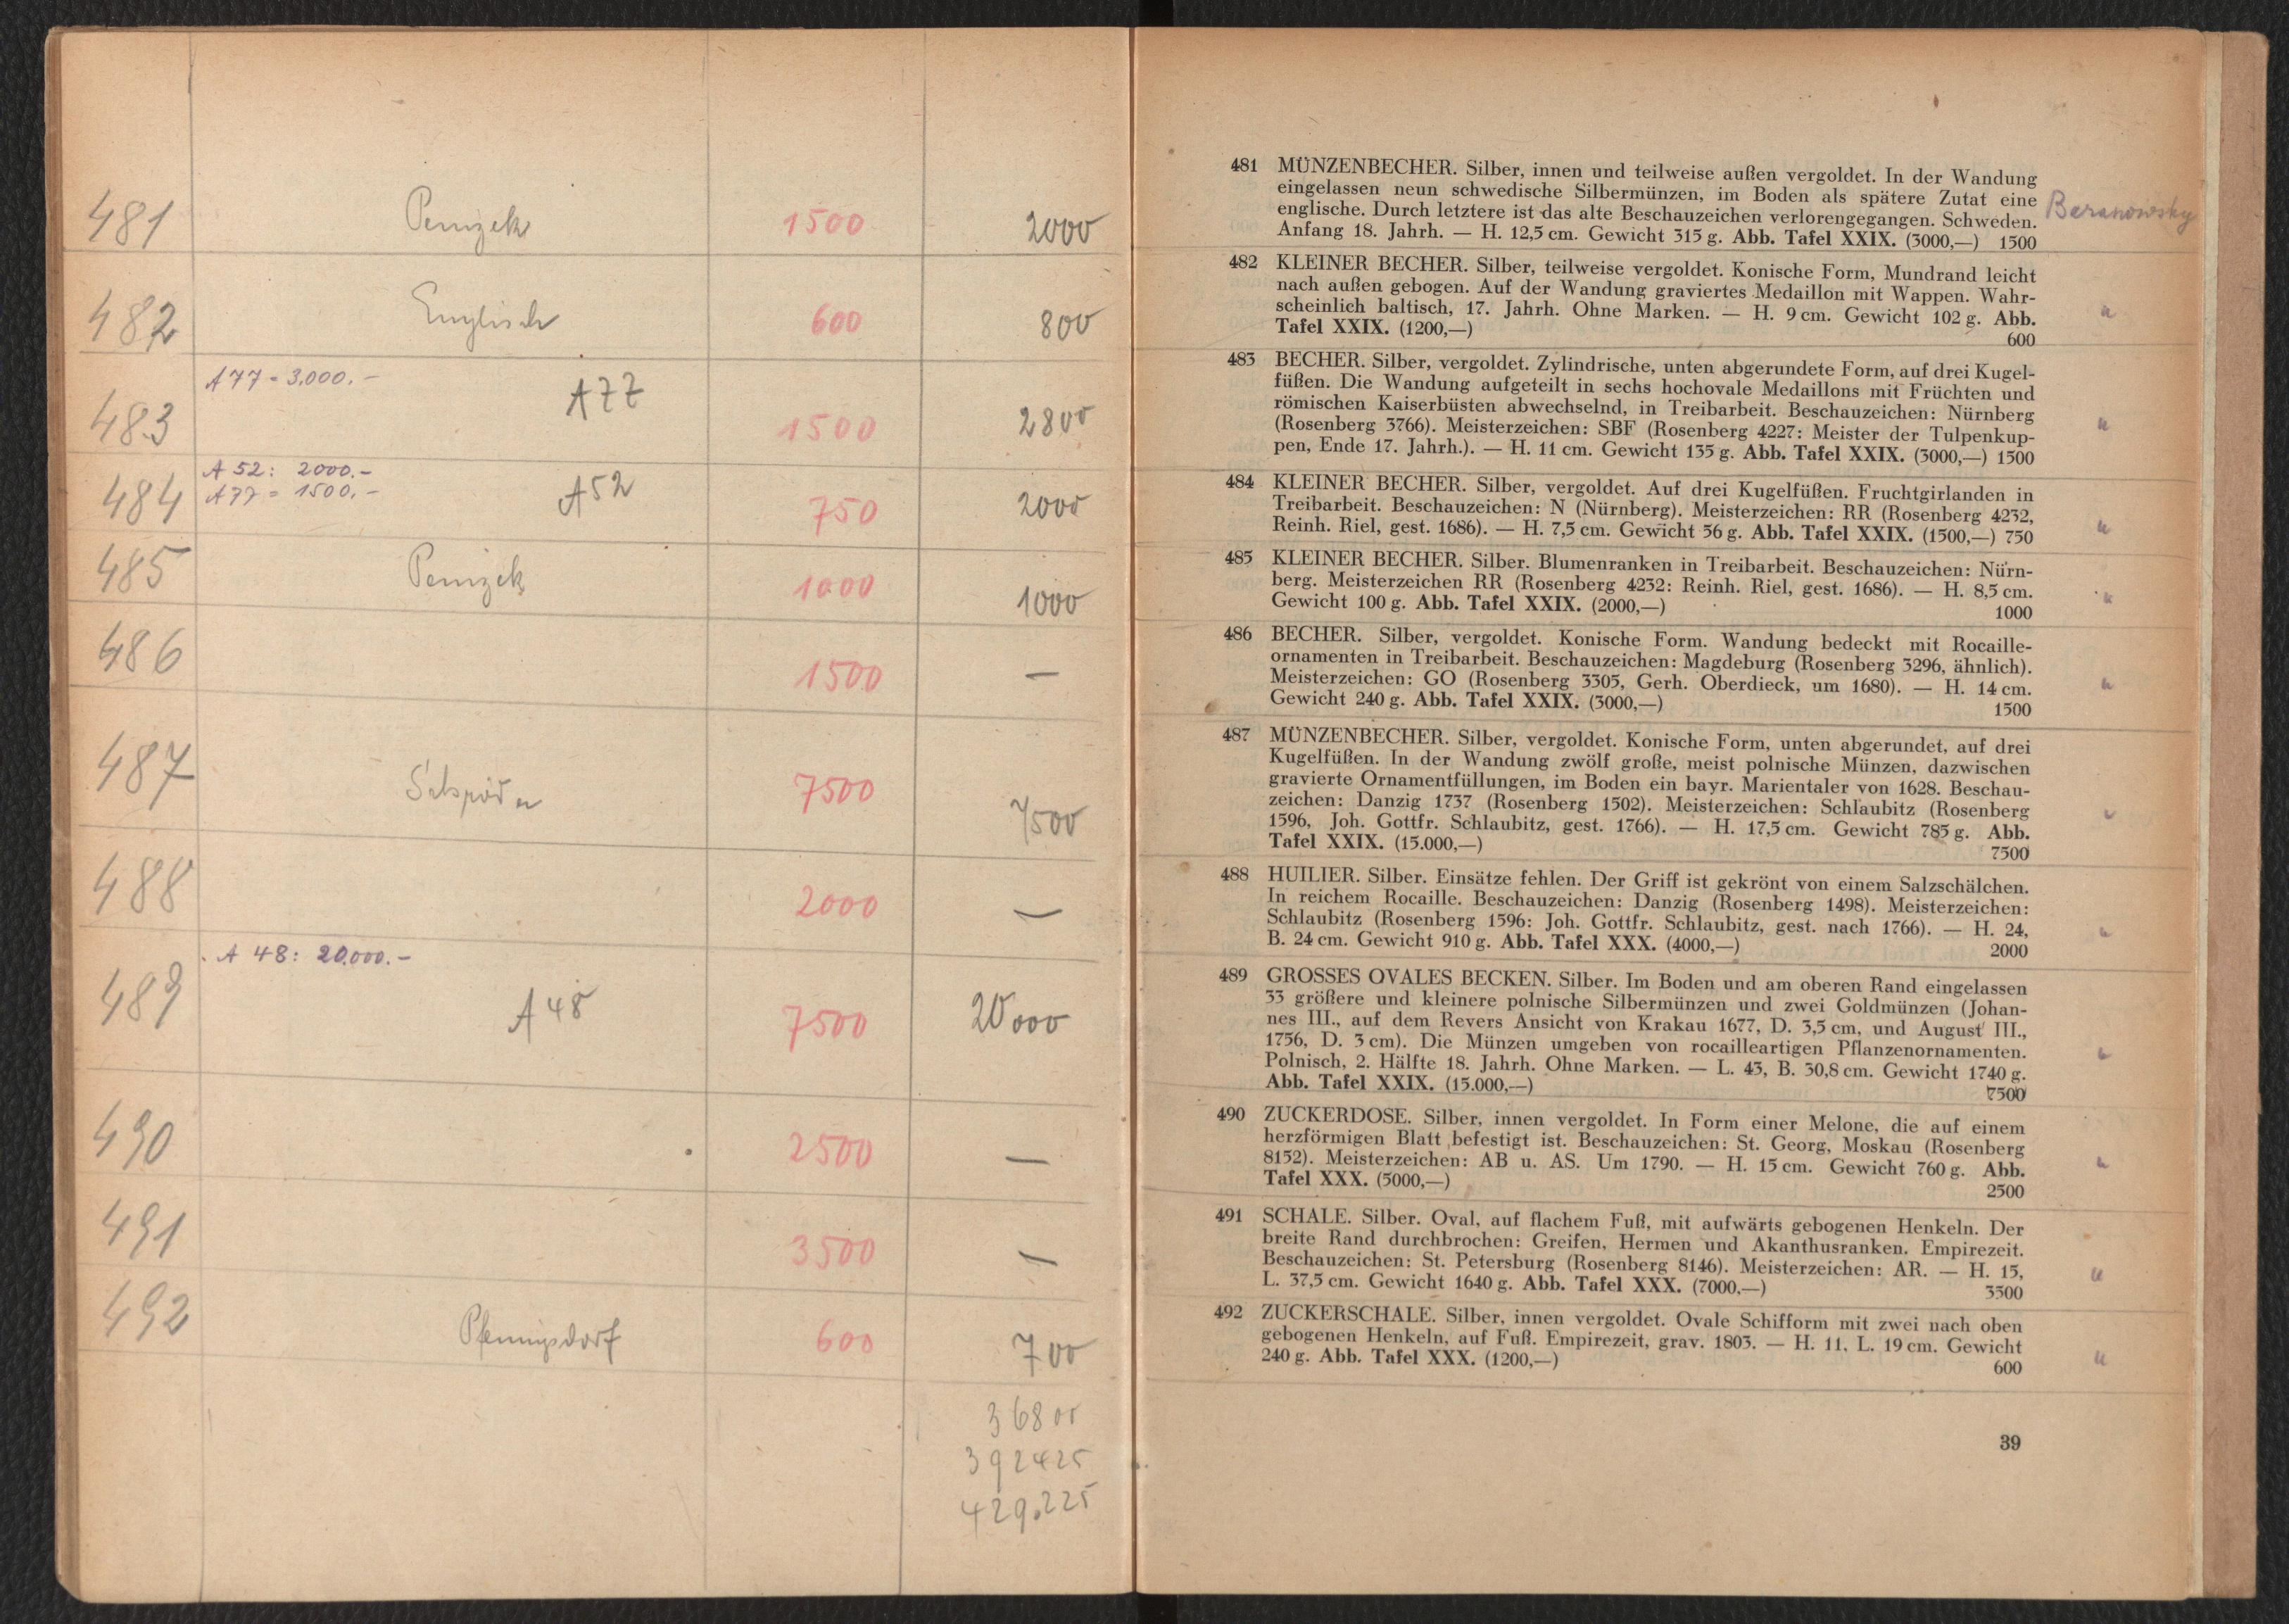 481 Penizek 1500 2000
482 Englisch 600 800
A 77 = 3.000.–
483 A 77 1500 2800
A 52: 2000.–
A 77 = 1500.–
484 A 52 750 2000
485 Penizek 1000 1000
486 1500 —
487 7500 7500
488 2000 —
A 48: 20.000.–
489 A 48 7500 20000
490 2500 —
491 3500 —
492 Pfennigsdorf 600 700
36800
392425
429.225
481 MÜNZENBECHER. Silber, innen und teilweise außen vergoldet. In der Wandung
eingelassen neun schwedische Silbermünzen, im Boden als spätere Zutat eine
englische. Durch letztere ist das alte Beschauzeichen verlorengegangen. Schweden.
Anfang 18. Jahrh. — H. 12,5 cm. Gewicht 315 g. Abb. Tafel XXIX. (3000,—) 1500
Baranowsky
482 KLEINER BECHER. Silber, teilweise vergoldet. Konische Form, Mundrand leicht
nach außen gebogen. Auf der Wandung graviertes Medaillon mit Wappen. Wahr-
scheinlich baltisch, 17. Jahrh. Ohne Marken. — H. 9 cm. Gewicht 102 g. Abb.
Tafel XXIX. (1200,—) 600
"
483 BECHER. Silber, vergoldet. Zylindrische, unten abgerundete Form, auf drei Kugel-
füßen. Die Wandung aufgeteilt in sechs hochovale Medaillons mit Früchten und
römischen Kaiserbüsten abwechselnd, in Treibarbeit. Beschauzeichen: Nürnberg
(Rosenberg 3766). Meisterzeichen: SBF (Rosenberg 4227: Meister der Tulpenkup-
pen, Ende 17. Jahrh.). — H. 11 cm. Gewicht 135 g. Abb. Tafel XXIX. (3000,—) 1500
"
484 KLEINER BECHER. Silber, vergoldet. Auf drei Kugelfüßen. Fruchtgirlanden in
Treibarbeit. Beschauzeichen: N (Nürnberg). Meisterzeichen: RR (Rosenberg 4232,
Reinh. Riel, gest. 1686). — H. 7,5 cm. Gewicht 56 g. Abb. Tafel XXIX. (1500,—) 750
"
485 KLEINER BECHER. Silber. Blumenranken in Treibarbeit. Beschauzeichen: Nürn-
berg. Meisterzeichen RR (Rosenberg 4232: Reinh. Riel, gest. 1686). — H. 8,5 cm.
Gewicht 100 g. Abb. Tafel XXIX. (2000,—) 1000
"
486 BECHER. Silber, vergoldet. Konische Form. Wandung bedeckt mit Rocaille-
ornamenten in Treibarbeit. Beschauzeichen: Magdeburg (Rosenberg 3296, ähnlich).
Meisterzeichen: GO (Rosenberg 3305, Gerh. Oberdieck, um 1680). — H. 14 cm.
Gewicht 240 g. Abb. Tafel XXIX. (3000,—) 1500
"
487 MÜNZENBECHER. Silber, vergoldet. Konische Form, unten abgerundet, auf drei
Kugelfüßen. In der Wandung zwölf große, meist polnische Münzen, dazwischen
gravierte Ornamentfüllungen, im Boden ein bayr. Marientaler von 1628. Beschau-
zeichen: Danzig 1737 (Rosenberg 1502). Meisterzeichen: Schlaubitz (Rosenberg
1596, Joh. Gottfr. Schlaubitz, gest. 1766). — H. 17,5 cm. Gewicht 785 g. Abb.
Tafel XXIX. (15.000,—) 7500
"
488 HUILIER. Silber. Einsätze fehlen. Der Griff ist gekrönt von einem Salzschälchen.
In reichem Rocaille. Beschauzeichen: Danzig (Rosenberg 1498). Meisterzeichen:
Schlaubitz (Rosenberg 1596: Joh. Gottfr. Schlaubitz, gest. nach 1766). — H. 24,
B. 24 cm. Gewicht 910 g. Abb. Tafel XXX. (4000,—) 2000
"
489 GROSSES OVALES BECKEN. Silber. Im Boden und am oberen Rand eingelassen
33 größere und kleinere polnische Silbermünzen und zwei Goldmünzen (Johan-
nes III., auf dem Revers Ansicht von Krakau 1677, D. 3,5 cm, und August III.,
1756, D. 3 cm). Die Münzen umgeben von rocailleartigen Pflanzenornamenten.
Polnisch, 2. Hälfte 18. Jahrh. Ohne Marken. — L. 43, B. 30,8 cm. Gewicht 1740 g.
Abb. Tafel XXIX. (15.000,—) 7500
"
490 ZUCKERDOSE. Silber, innen vergoldet. In Form einer Melone, die auf einem
herzförmigen Blatt befestigt ist. Beschauzeichen: St. Georg, Moskau (Rosenberg
8152). Meisterzeichen: AB u. AS. Um 1790. — H. 15 cm. Gewicht 760 g. Abb.
Tafel XXX. (5000,—) 2500
"
491 SCHALE. Silber. Oval, auf flachem Fuß, mit aufwärts gebogenen Henkeln. Der
breite Rand durchbrochen: Greifen, Hermen und Akanthusranken. Empirezeit.
Beschauzeichen: St. Petersburg (Rosenberg 8146). Meisterzeichen: AR. — H. 15,
L. 37,5 cm. Gewicht 1640 g. Abb. Tafel XXX. (7000,—) 3500
"
492 ZUCKERSCHALE. Silber, innen vergoldet. Ovale Schifform mit zwei nach oben
gebogenen Henkeln, auf Fuß. Empirezeit, grav. 1803. — H. 11, L. 19 cm. Gewicht
240 g. Abb. Tafel XXX. (1200,—) 600
"
39